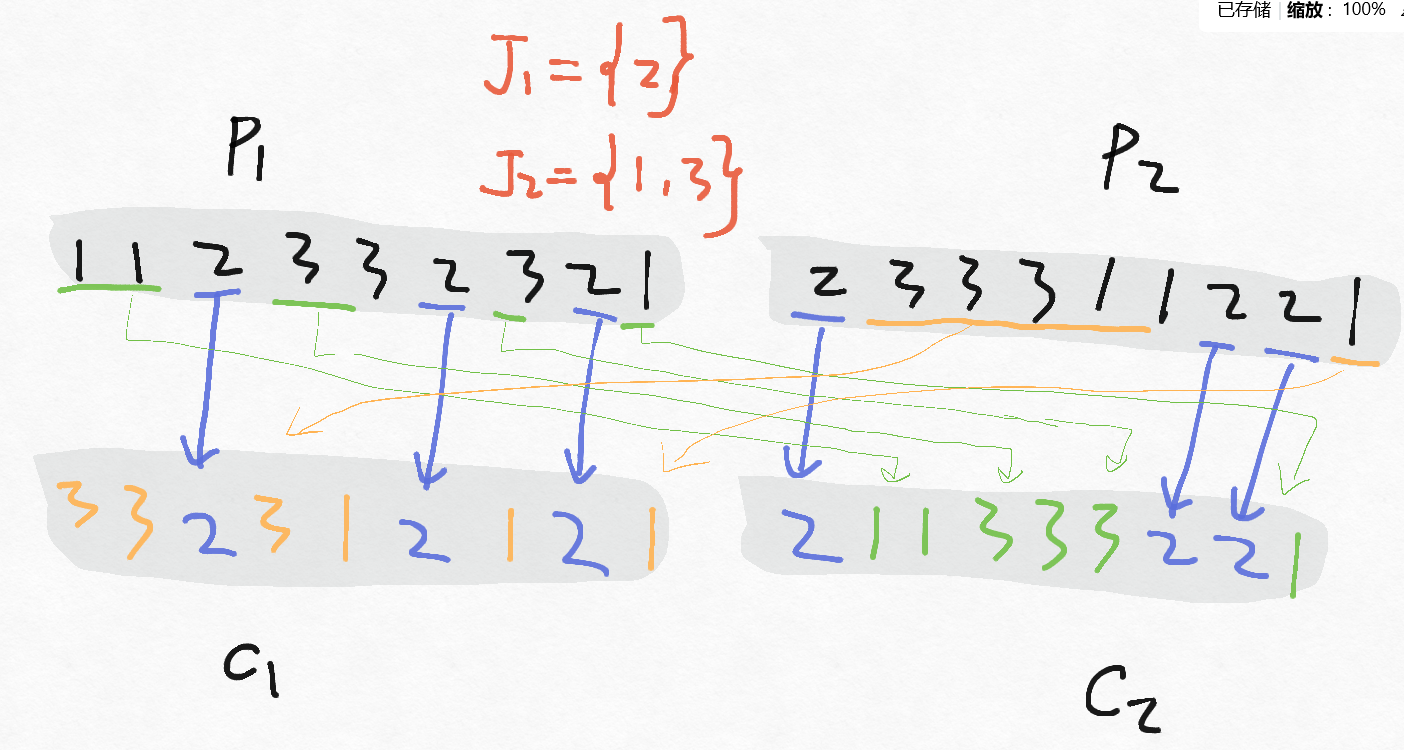 已存储 | 缩放: 100%
J1 = {2}
P1
P2
J2 = {1, 3}
1 1 2 3 3 2 3 2 1
2 3 3 3 1 1 2 2 1
3 3 2 3 1 2 1 2 1
2 1 1 3 3 3 2 2 1
C1
C2